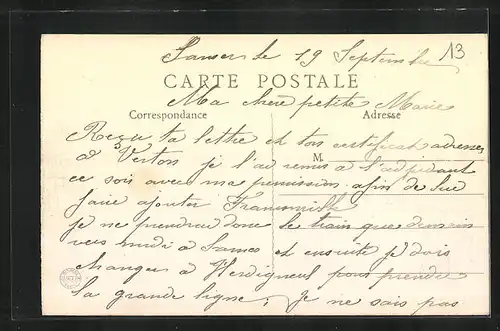 Samer le 19 Septembre
13
CARTE POSTALE
Ma chère petite Marie
Correspondance
Adresse
Reçu ta lettre et ton certificat adressé
M
à Verton je l'ai remis à l'adjudant
ce soir avec ma permission afin de lui
faire ajouter
je ne prendrai donc le train que demain
vers midi à Samer et ensuite je dois
changer à Hesdigneul pour prendre
la grande ligne, je ne sais pas